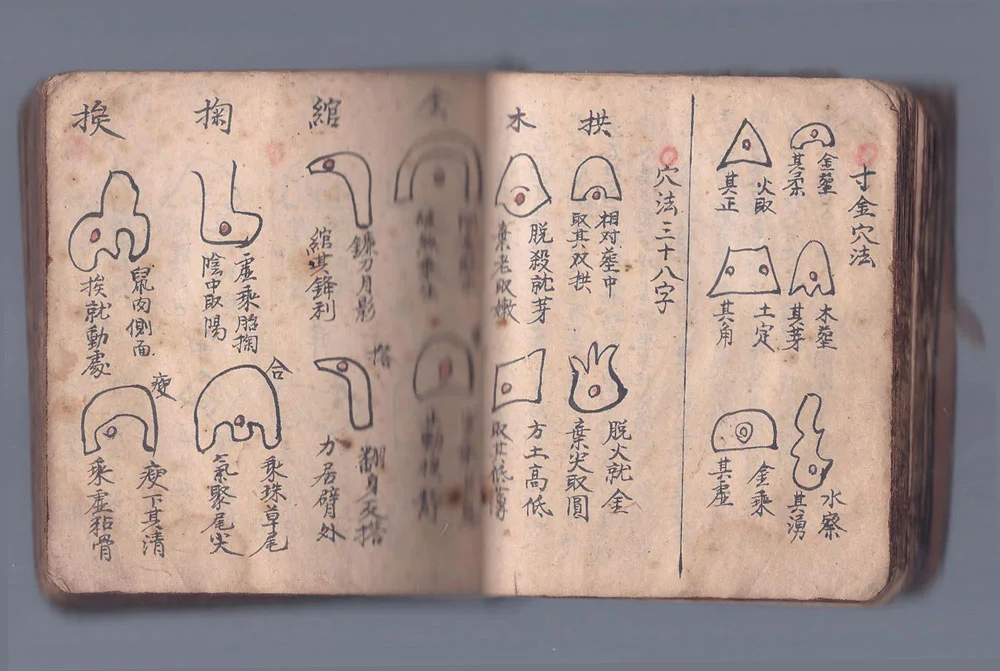 寸金穴法
金葬
其柔
木葬
其芽
水察
其湧
火取
其正
土定
其角
金乘
其虛
穴法三十八字
拱
相对葬中
取其双拱
脫火就金
棄尖取圓
木
脫殺就芽
棄老取嫩
方土高低
取其低薄
綰
鐮刀月影
綰其鋒利
搭
翻身反搭
力居臂外
掬
虛乘胎掬
陰中取陽
合
乘珠草尾
氣聚尾尖
挨
鼠肉側面
挨就動處
瘦
瘦下其清
乘虛粘骨